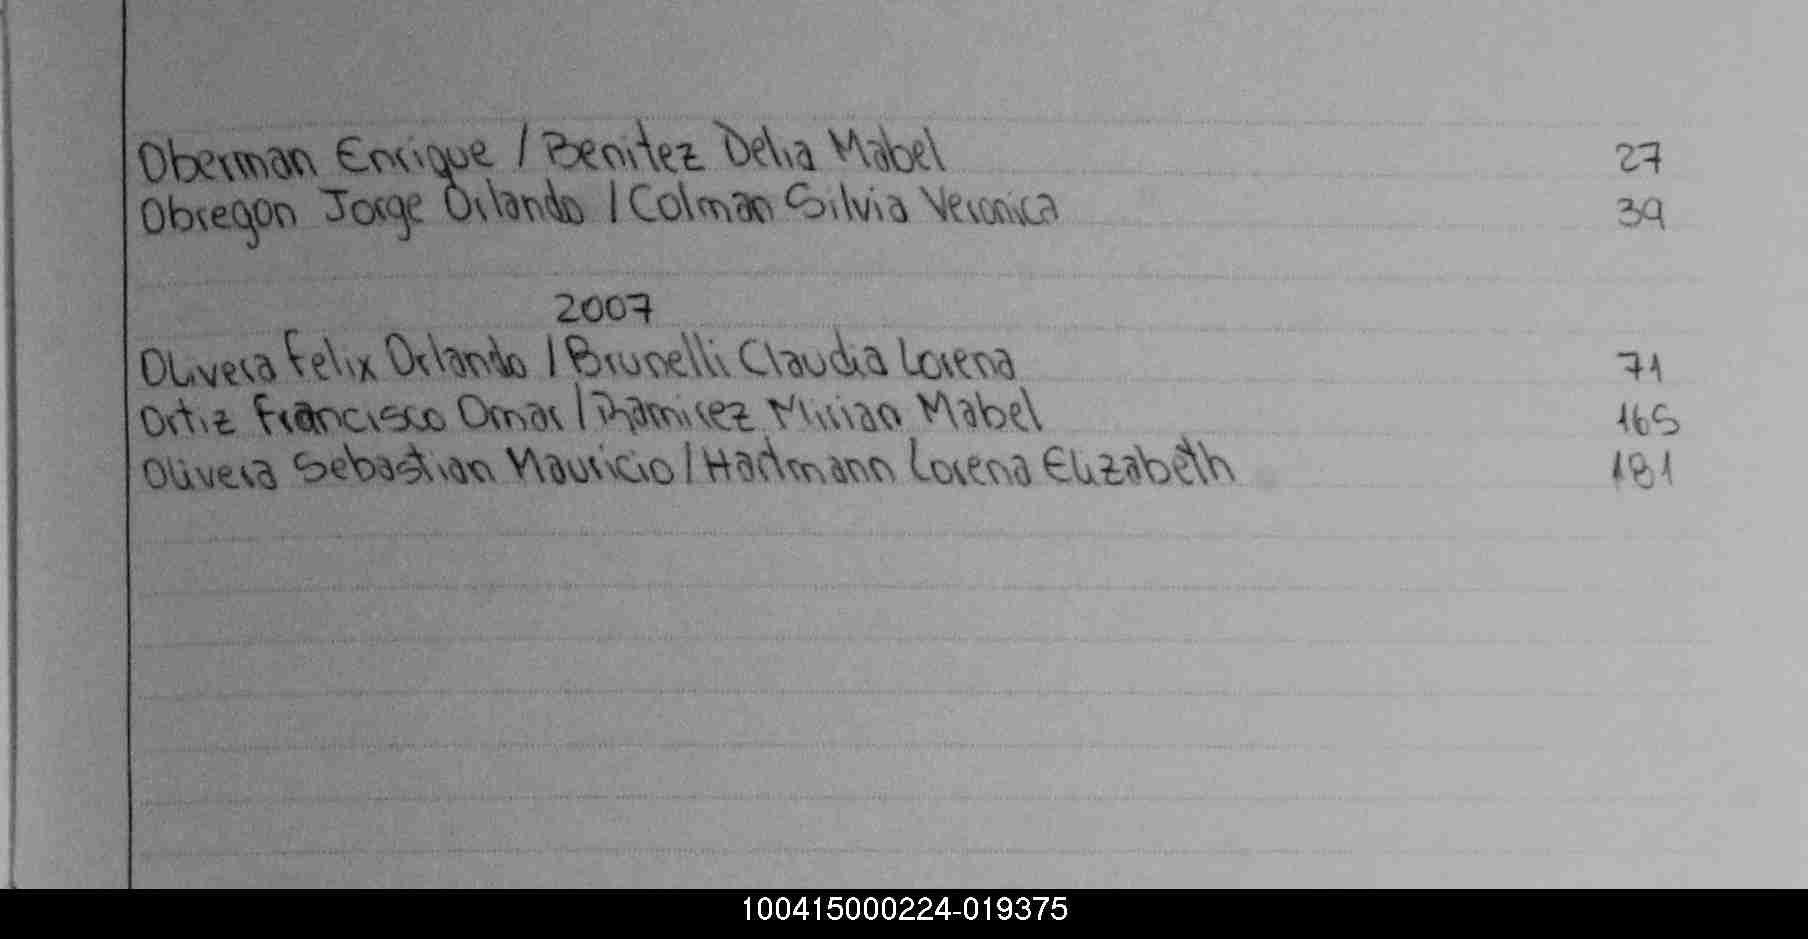 Oberman Enrique / Benitez Delia Mabel 27
Obregon Jorge Orlando / Colman Silvia Veronica 39
2007
Olivera Felix Orlando / Brunelli Claudia Lorena 71
Ortiz Francisco Omar / Ramirez Mirian Mabel 165
Olivera Sebastian Mauricio / Hartmann Lorena Elizabeth 181
100415000224-019375